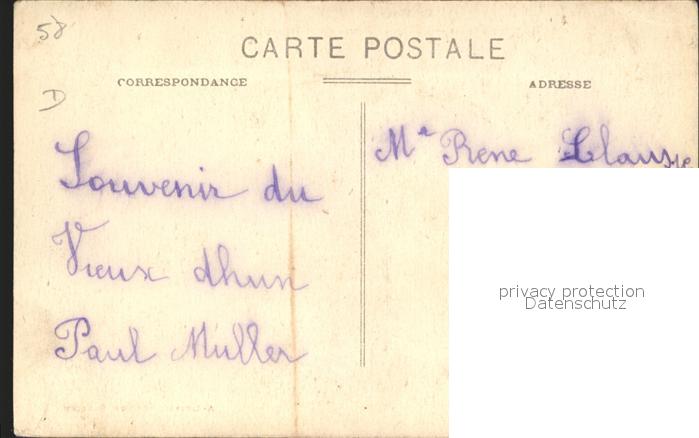 58
CARTE POSTALE
CORRESPONDANCE
ADRESSE
D
Souvenir du
Vieux dhun
Paul Muller
Me Rene
privacy protection
Datenschutz